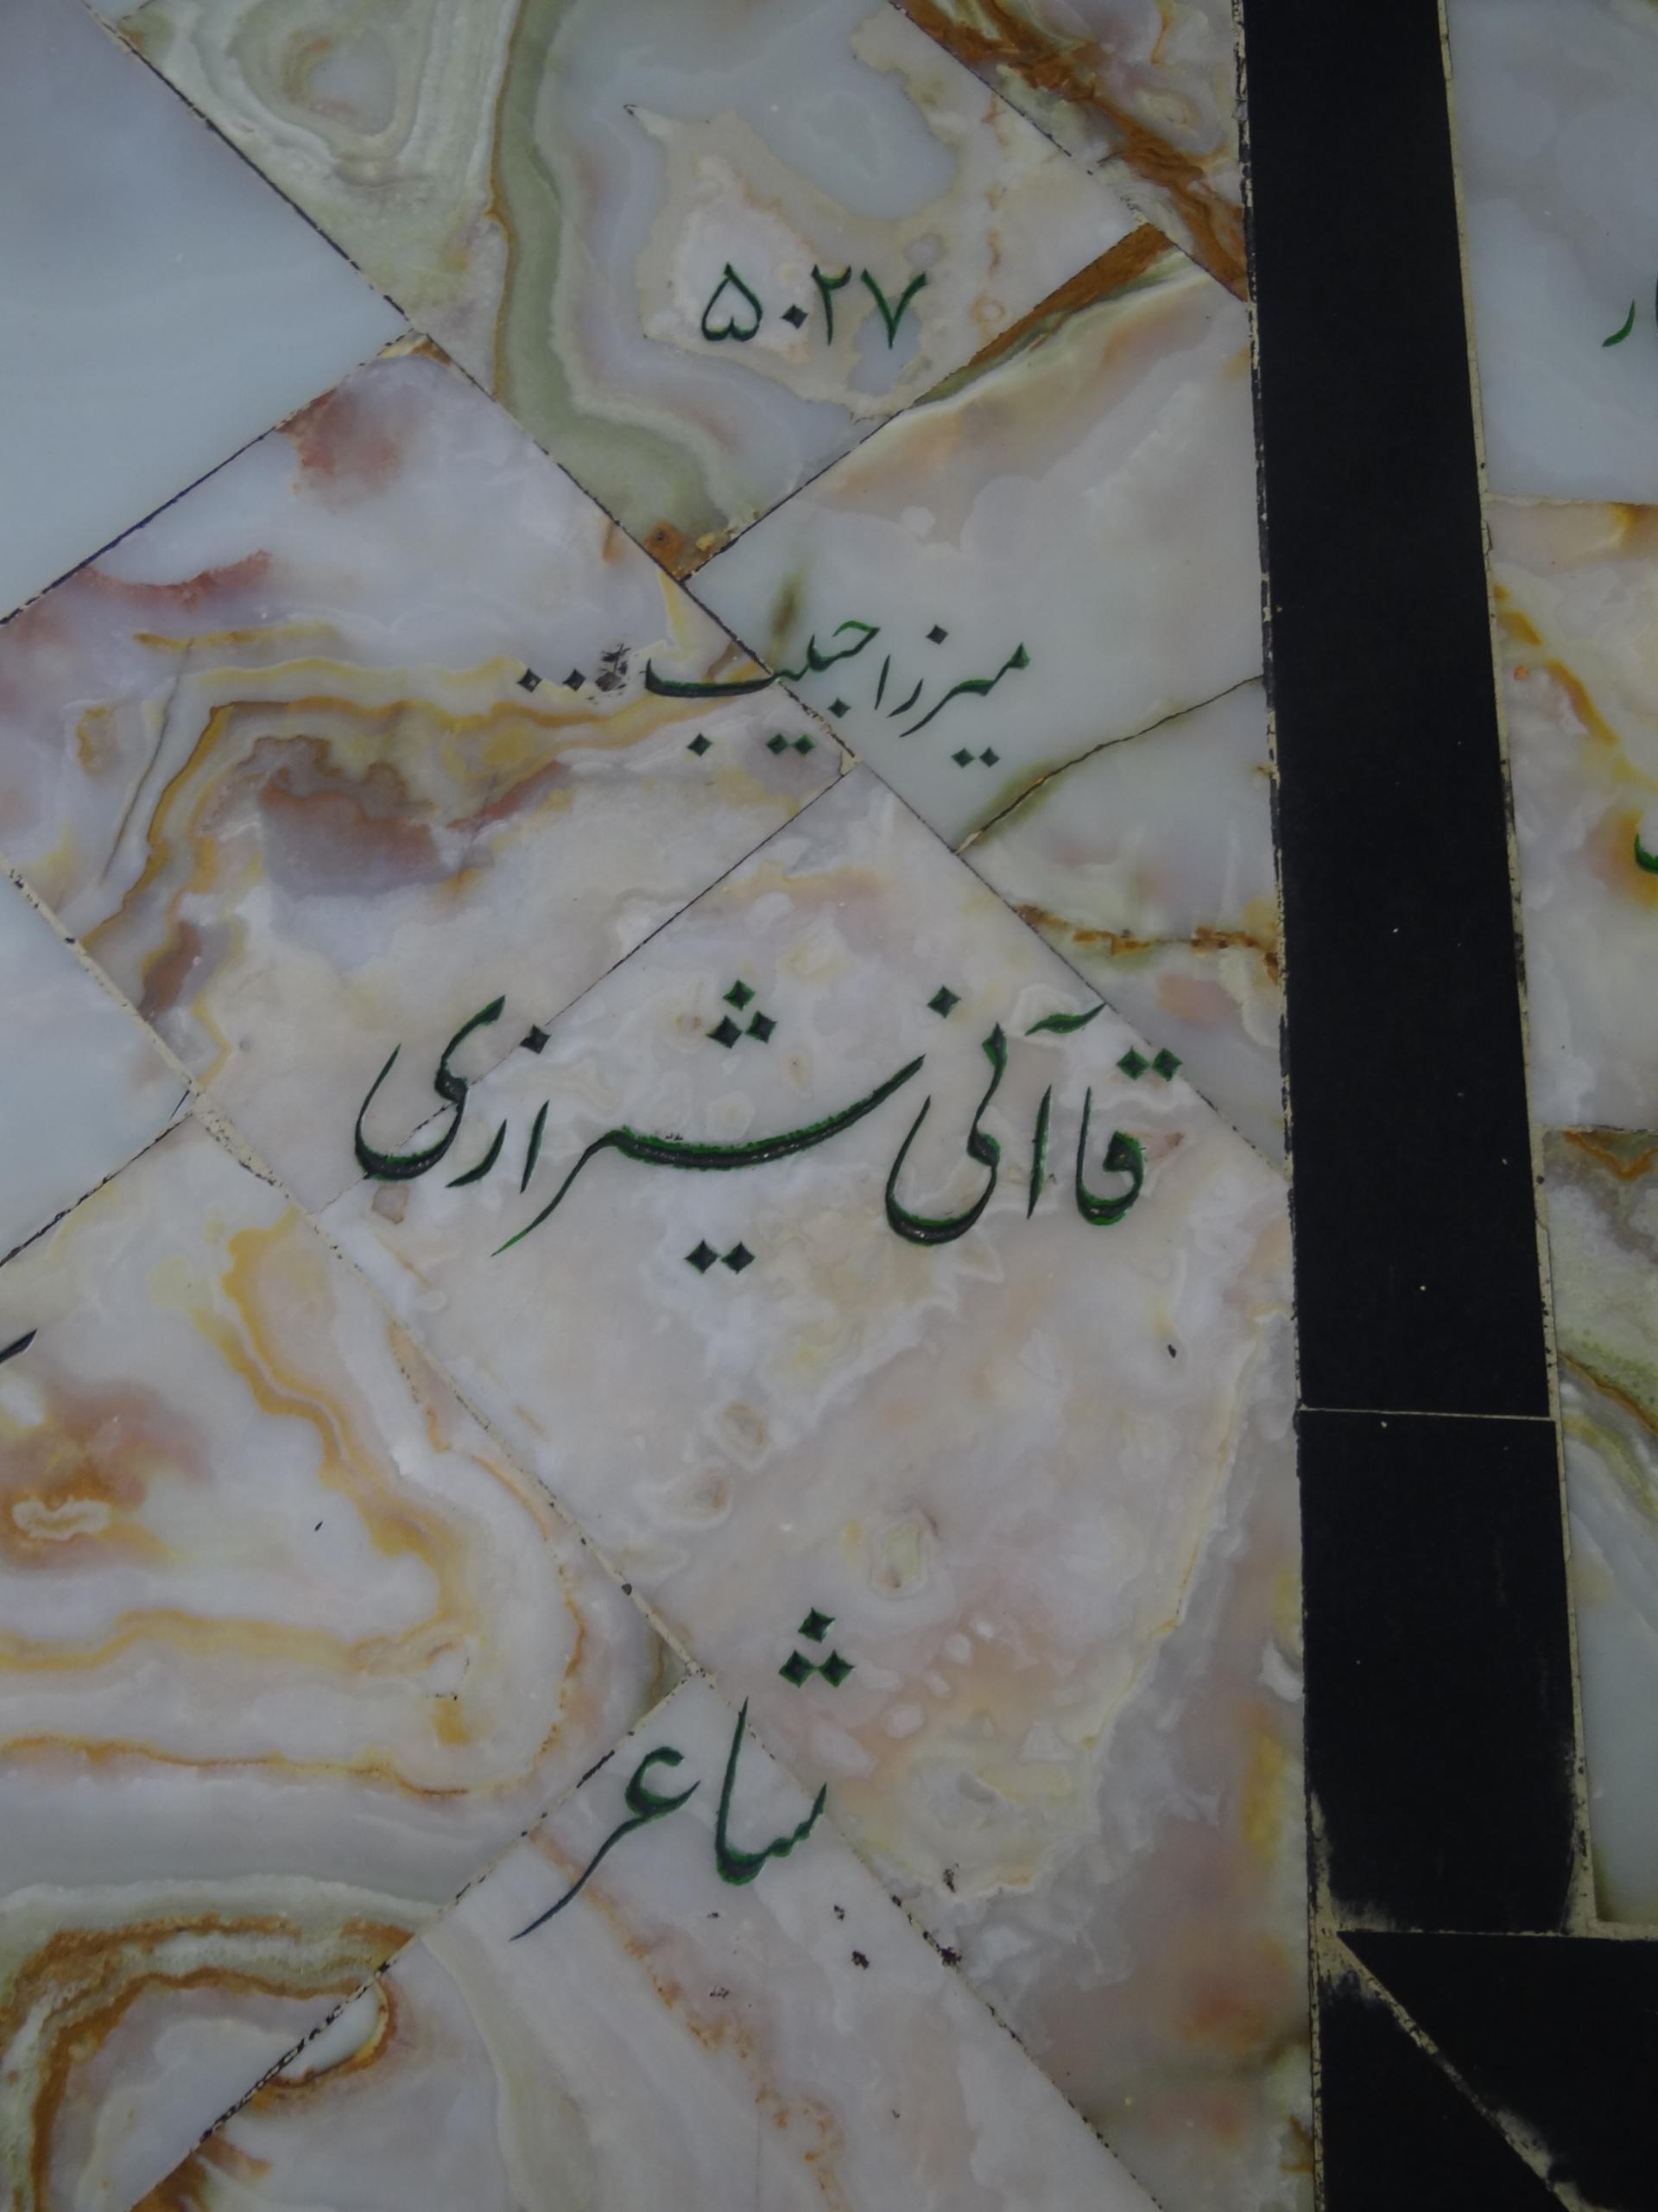 ۵۰۲۷
میرزا حبیب ...
قاآنی شیرازی
شاعر